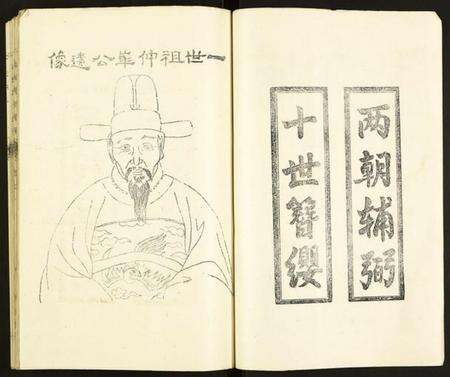 两朝辅弼
十世簪缨
一世祖仲華公遺像